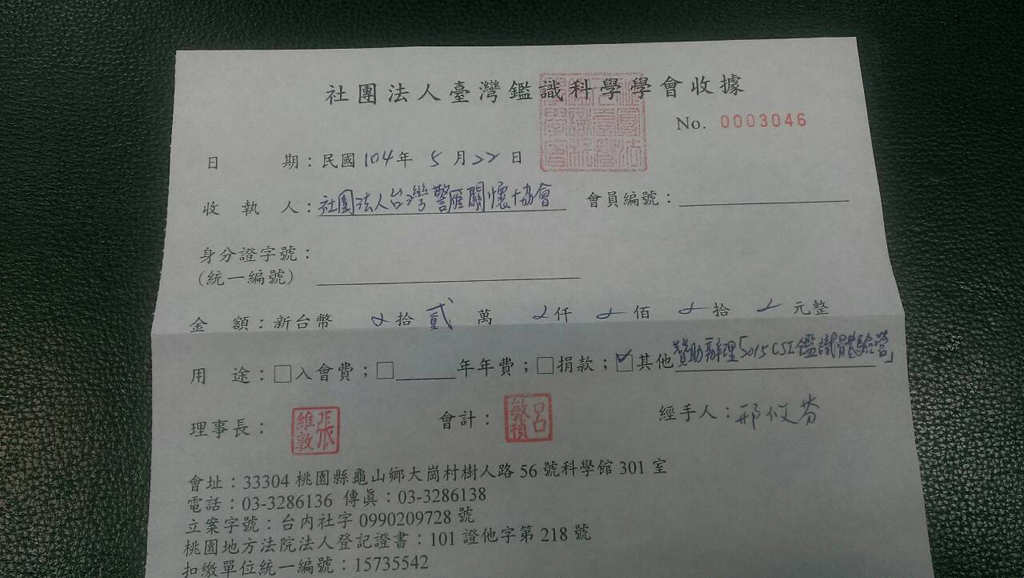 社團法人臺灣鑑識科學學會收據
No. 0003046
日期：民國104年5月22日
收執人：社團法人台灣警雁關懷協會 會員編號：
身分證字號：
(統一編號)
金額：新台幣 拾貳萬 仟 佰 拾 元整
用途：□入會費；□ 年年費；□捐款；☑其他 贊助辦理「2015 CSI鑑識體驗營」
理事長： 張維敦 會計： 呂敏禎 經手人：邢
會址：33304 桃園縣龜山鄉大崗村樹人路 56 號科學館 301 室
電話：03-3286136 傳真：03-3286138
立案字號：台內社字 0990209728 號
桃園地方法院法人登記證書：101 證他字第 218 號
扣繳單位統一編號：15735542